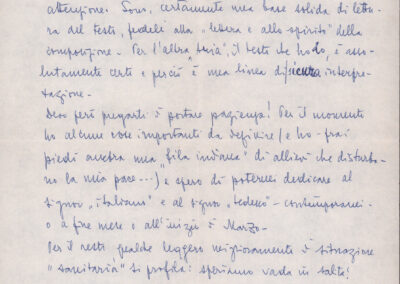 attenzione. Sono, certamente una base solida di lettu-
ra dei testi, fedeli alla „lettera e allo spirito" della
composizione - Per l'altra „
lutamente certo e perciò è mia linea di sicura interpre-
tazione -
Devo però pregarti di portare pazienza! Per il momento
ho alcune cose importanti da definire (e ho - frai
piedi ancora una „fila indiana" di allievi che disturba-
no la mia pace...) e spero di potermi dedicare al
signor „italiano" e al signor „tedesco" - contemporanei -
o a fine mese o all'inizio di Marzo -
Per il resto qualche leggero miglioramento di situazione
„sanitaria" si profila: speriamo vada in salita!